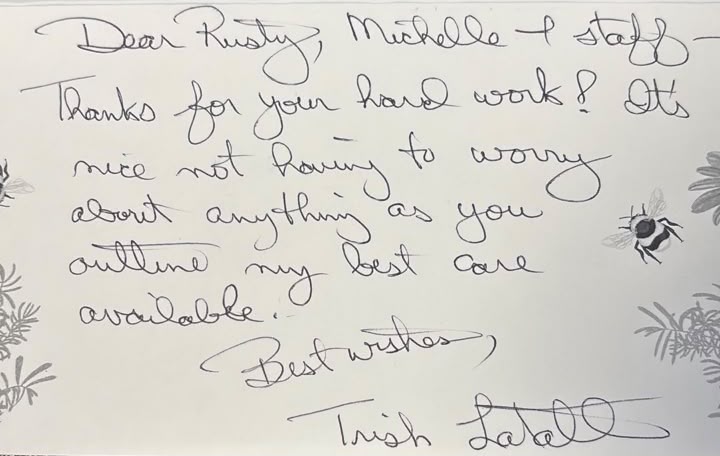 Dear Rusty, Michelle + staff -
Thanks for your hard work! It's
nice not having to worry
about anything as you
outline my best care
available.
Best wishes,
Trish